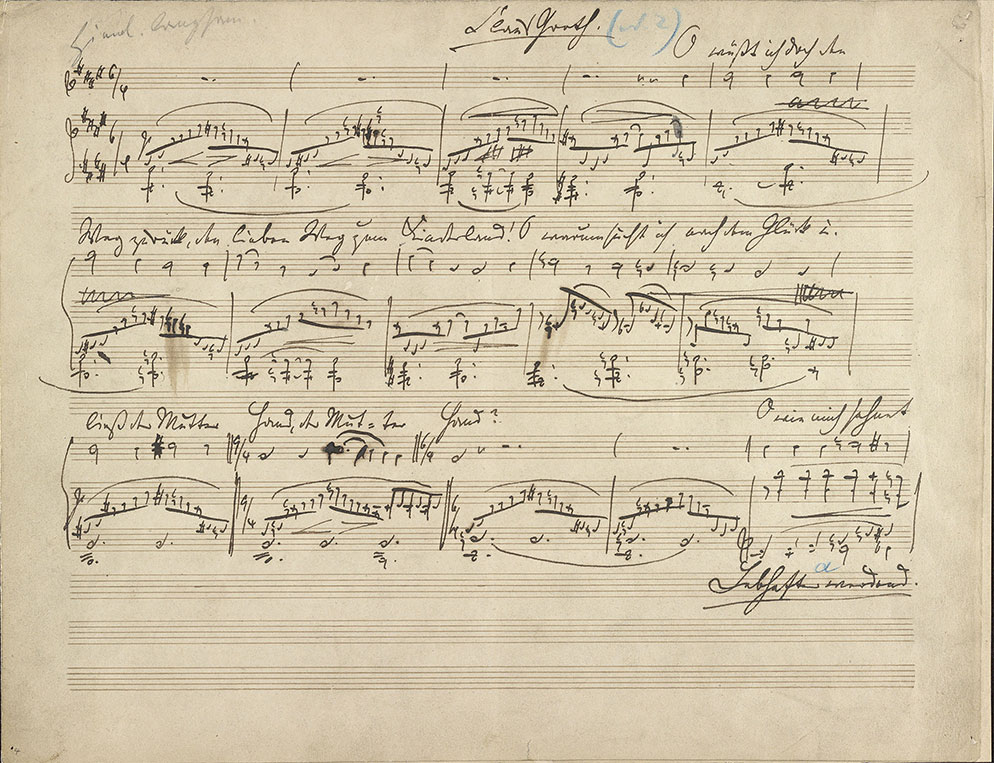 langsam.
Klaus Groth.
O wüßt ich doch den
Weg zurück, den lieben Weg zum Kinderland! O warum sucht ich nach dem Glück u.
ließ der Mutter Hand, der Mut=ter Hand? O wie mich sehnet
Lebhafter werdend.